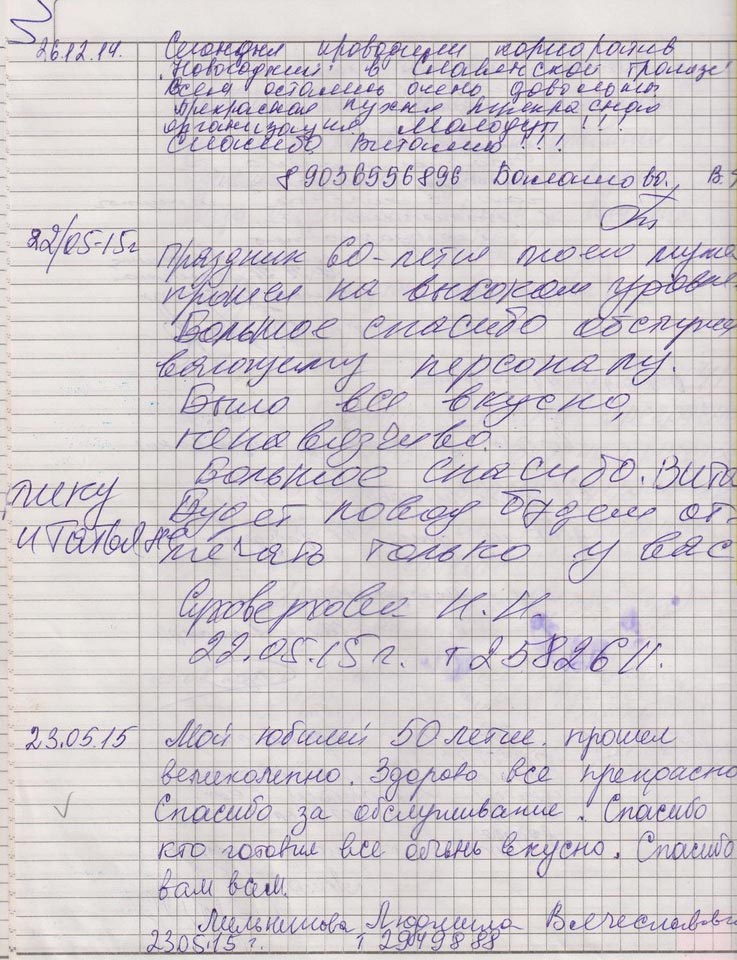 26.12.14. Сегодня проводили корпоратив
"Новогодний" в "Славянской трапезе"
Всем остались очень довольны
Прекрасная кухня прекрасная
организация Молодцы !!!
Спасибо Виталию !!!
89036556896 В.
22/05-15г Праздник 60-летия моего мужа
прошел на высоком уровне.
Большое спасибо обслужи
вающему персоналу.
Было все вкусно,
ненавязчиво.
Большое спасибо. Вита
лику Будет повод будем от-
и Татьяне мечать только у вас
Суховерхова Н.Н.
22.05.15г. т 25826 11.
23.05.15 Мой юбилей 50 летие. прошел
великолепно. Здорово все прекрасно
Спасибо за обслуживание. Спасибо
кто готовил все очень вкусно. Спасибо
вам всем.
Мельникова Людмила Вячеславовна
23.05.15 г. т 2949888